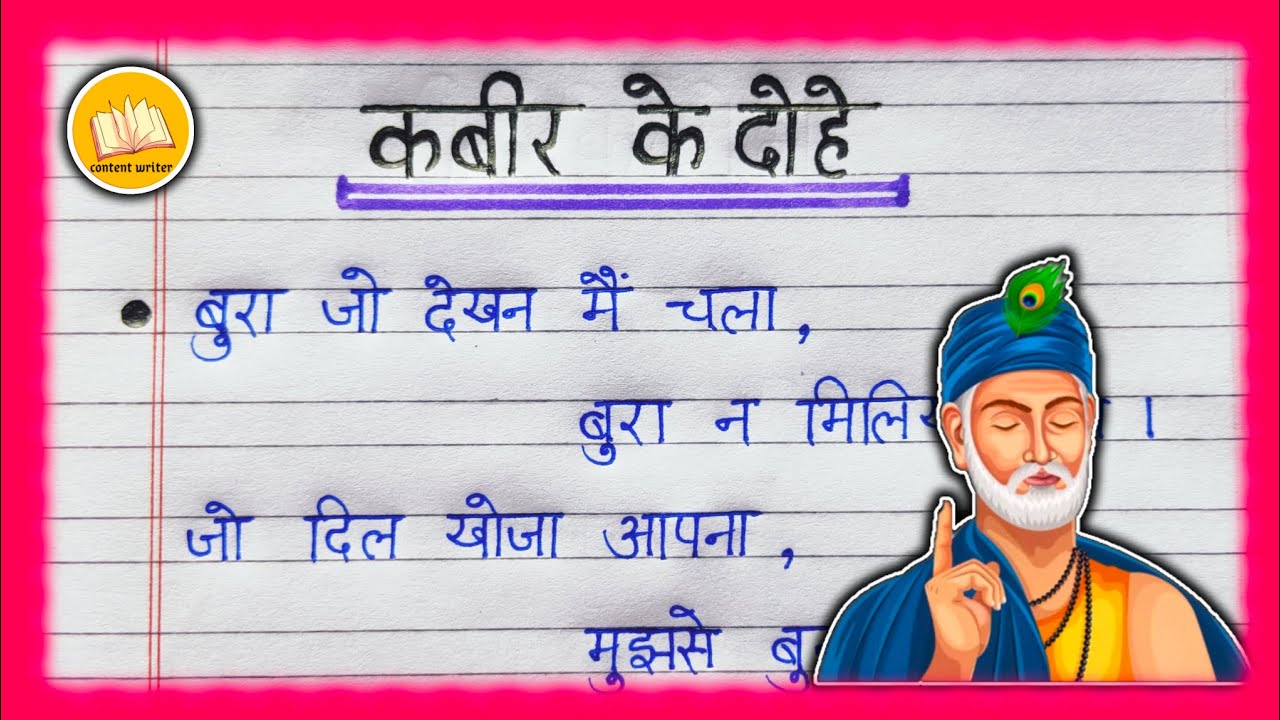 content writer
कबीर के दोहे
बुरा जो देखन मैं चला,
बुरा न
जो दिल खोजा आपना,
मुझसे